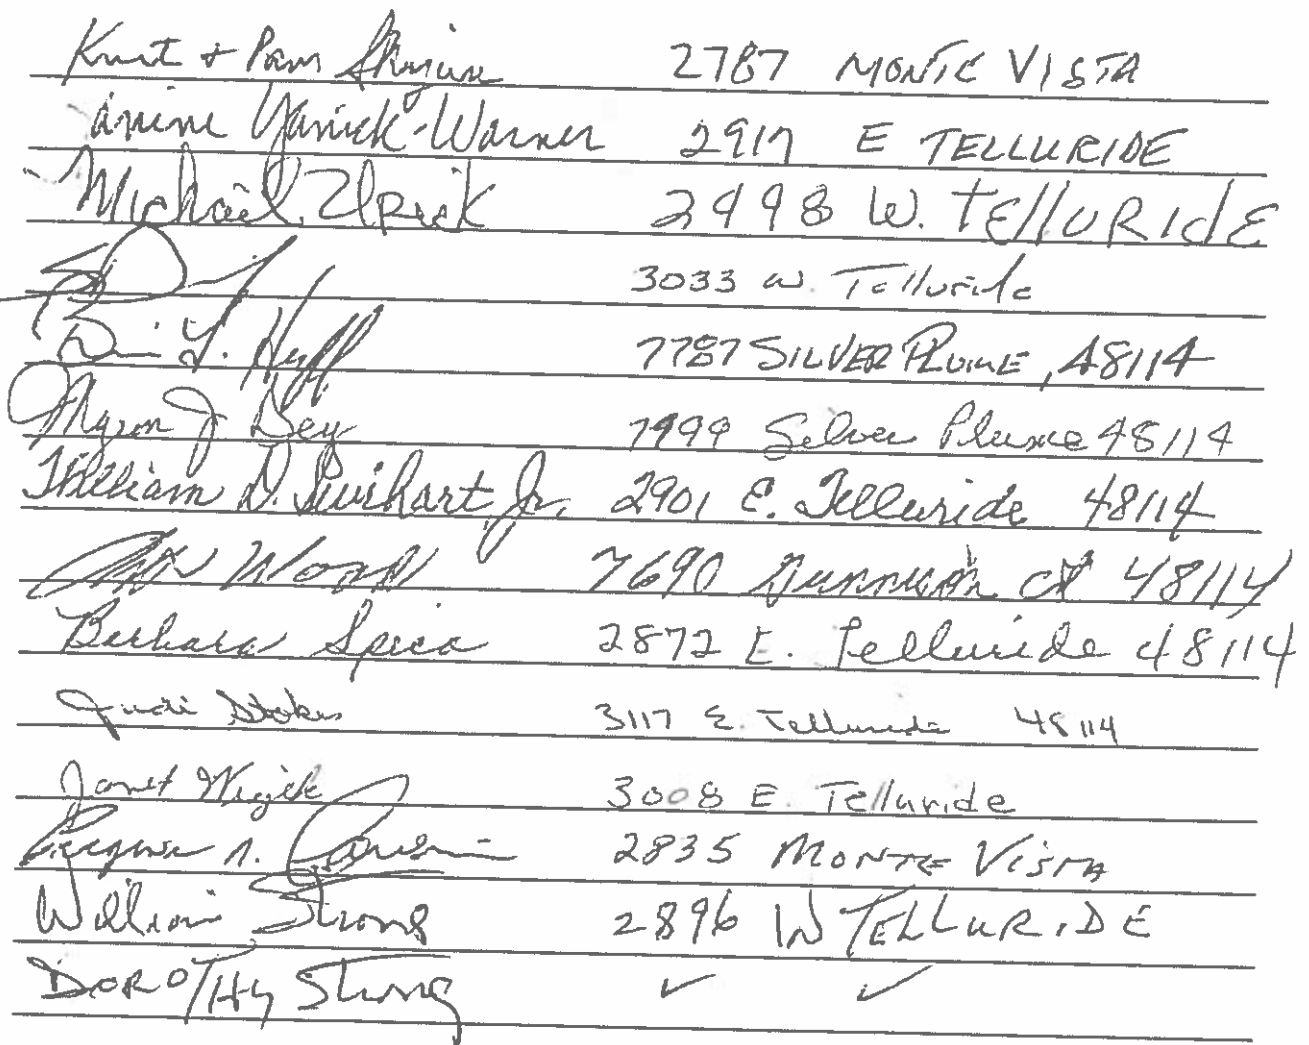 Kurt + Pam 2787 MONTE VISTA
Janine Yanick-Warner 2917 E TELLURIDE
Michael Ulrick 2998 W. TELLURIDE
3033 W. Telluride
L. Huff 7787 SILVER PLUME, 48114
Myron J Dey 7999 Silver Plume 48114
William D. Swihart, Jr. 2901 E. Telluride 48114
Wood 7690 Gunnison Ct 48114
Barbara Spica 2872 E. Telluride 48114
Judi Stokes 3117 E. Telluride 48114
Janet 3008 E. Telluride
2835 MONTE VISTA
William Strong 2896 W TELLURIDE
DOROTHY Strong ✓ ✓